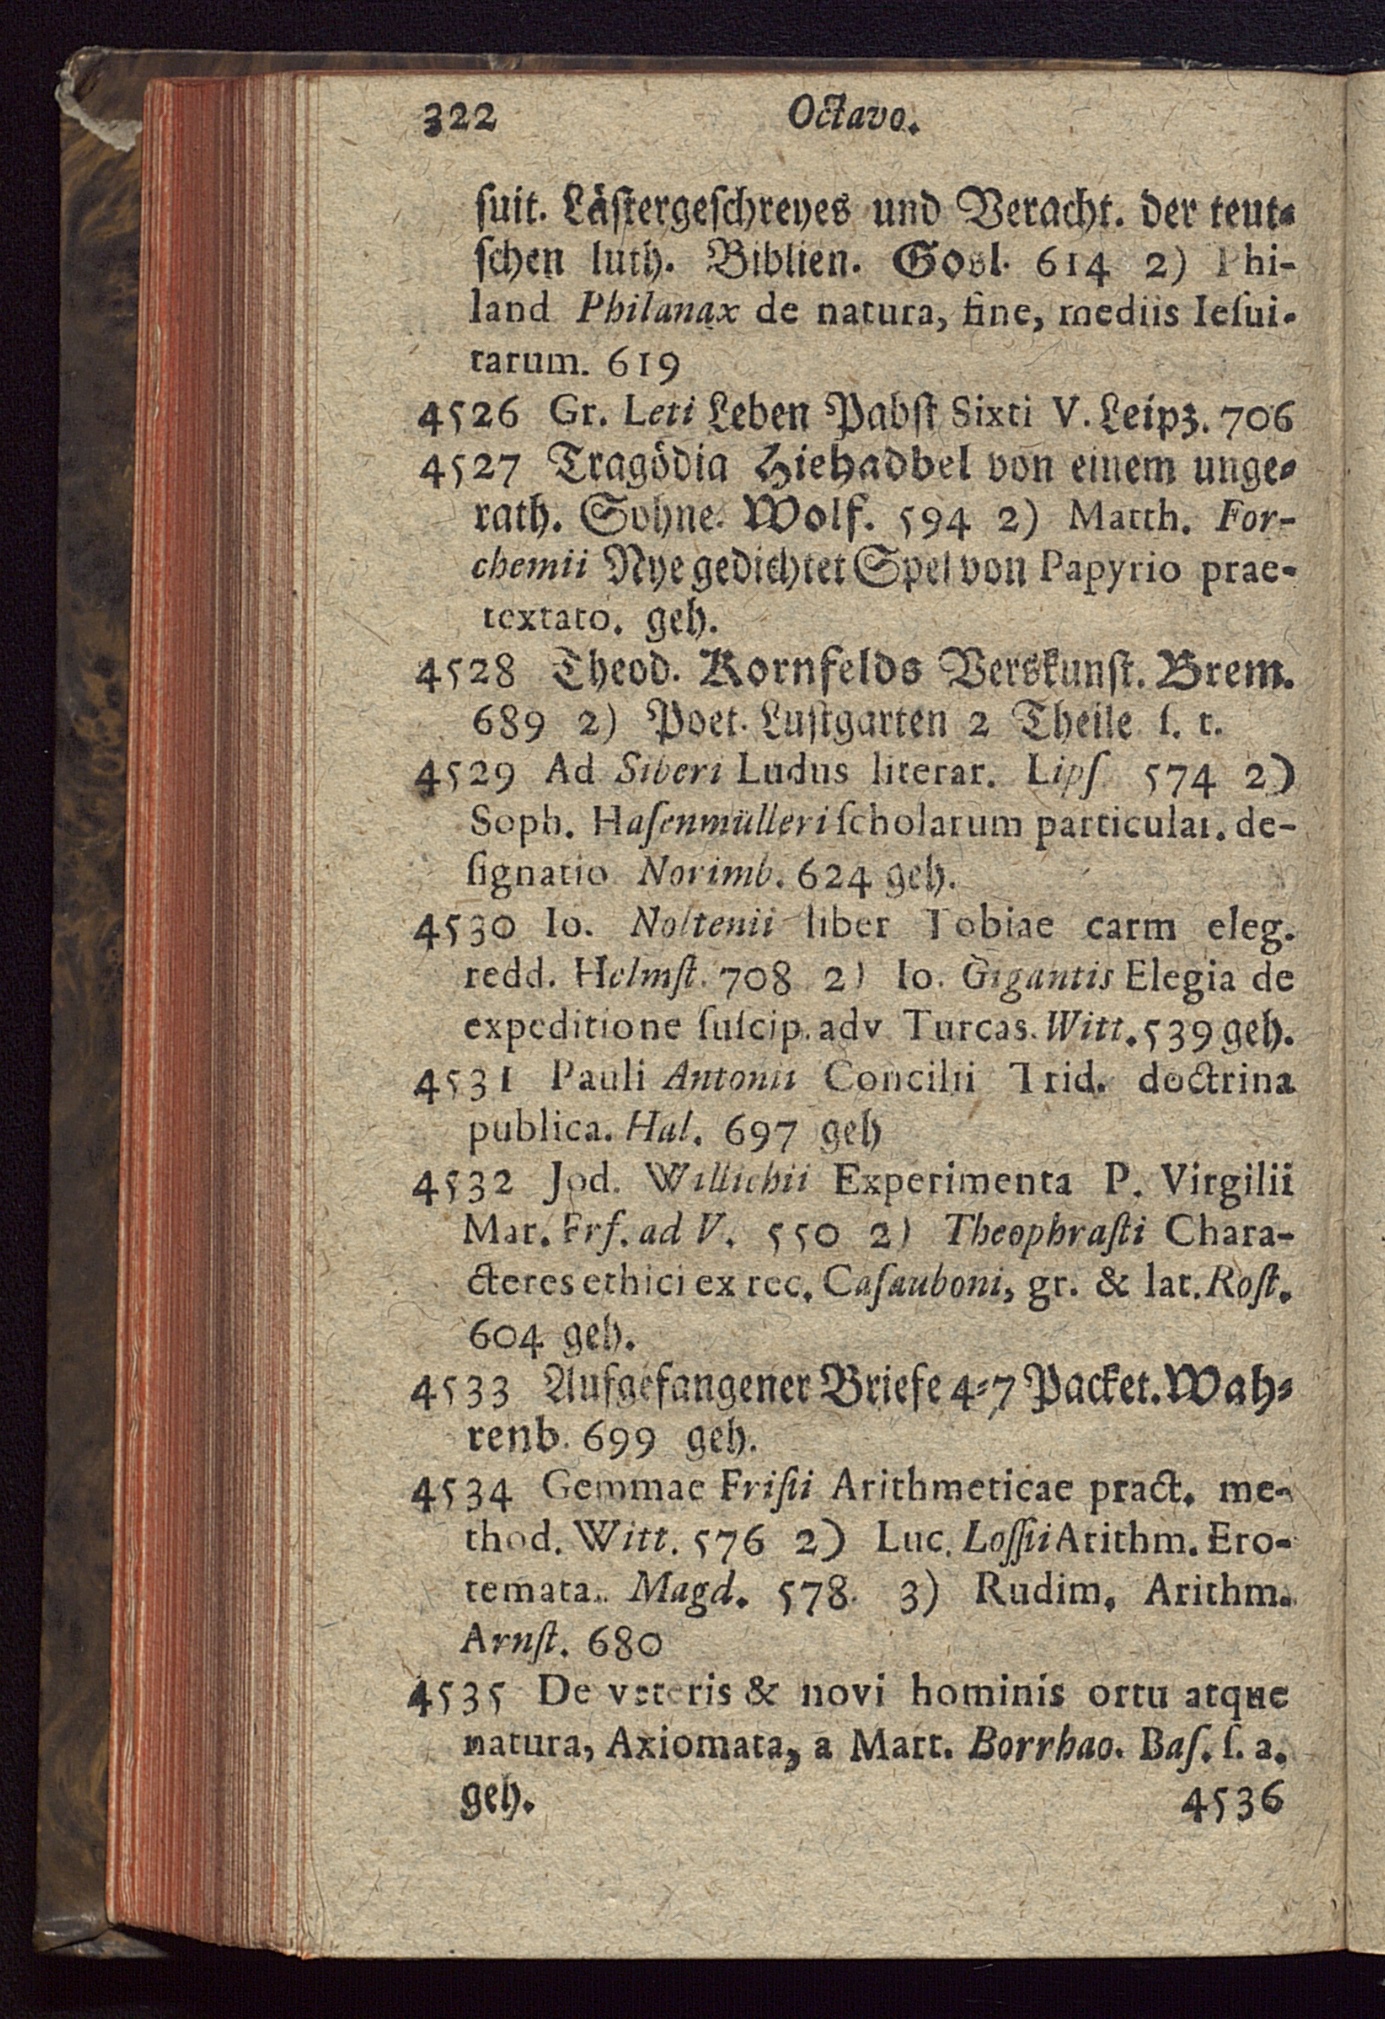 322 Octavo.
ſuit. Läſtergeſchreyes und Veracht. der teut⸗
ſchen luth. Biblien. Gosl. 614 2) Phi-
land Philanax de natura, fine, mediis Ieſui-
tarum. 619
4526 Gr. Leti Leben Pabſt Sixti V. Leipz. 706
4527 Tragödia Hiehadbel von einem unge⸗
rath. Sohne. Wolf. 594 2) Matth. For-
chemii Nye gedichtet Spel von Papyrio prae-
textato. geh.
4528 Theod. Kornfelds Verskunſt. Brem.
689 2) Poet. Luſtgarten 2 Theile ſ. t.
4529 Ad Siberi Ludus literar. Lipſ 574 2)
Soph. Haſenmülleri ſcholarum particular. de-
ſignatio Norimb. 624 geh.
4530 Io. Noltenii liber Tobiae carm eleg.
redd. Helmſt. 708 2) Io. Gigantis Elegia de
expeditione ſuſcip. adv Turcas. Witt. 539 geh.
4531 Pauli Antonii Concilii Trid. doctrina
publica. Hal. 697 geh
4532 Jod. Willichii Experimenta P. Virgilii
Mar. Erf. ad V. 550 2) Theophraſti Chara-
cteres ethici ex rec. Caſauboni, gr. & lat. Roſt.
604 geh.
4533 Aufgefangener Briefe 4⸗7 Packet. Wah⸗
renb. 699 geh.
4534 Gemmae Friſii Arithmeticae pract. me-
thod. Witt. 576 2) Luc. Loſſii Arithm. Ero-
temata. Magd. 578. 3) Rudim. Arithm.
Arnſt. 680
4535 De veteris & novi hominis ortu atque
natura, Axiomata, a Matt. Borrhao. Baſ. ſ. a.
geh. 4536